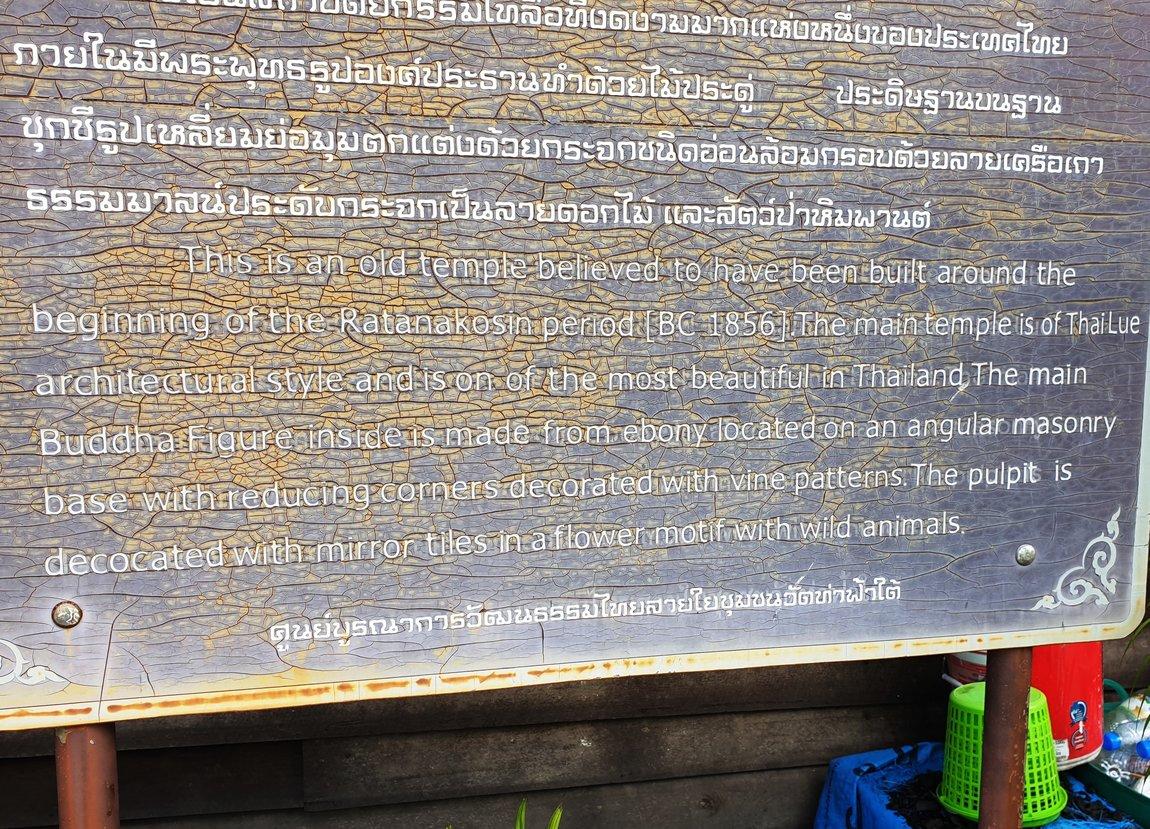 สถาปัตยกรรมไทลื้อที่งดงามมากแห่งหนึ่งของประเทศไทย
ภายในมีพระพุทธรูปองค์ประธานทำด้วยไม้ประดู่ ประดิษฐานบนฐาน
ชุกชีรูปเหลี่ยมย่อมุมตกแต่งด้วยกระจกชนิดอ่อนล้อมกรอบด้วยลายเครือเถา
ธรรมมาสน์ประดับกระจกเป็นลวยดอกไม้ และสัตว์ป่าหิมพานต์
This is an old temple believed to have been built around the
beginning of the Ratanakosin period [BC 1856].The main temple is of Thai Lue
architectural style and is on of the most beautiful in Thailand.The main
Buddha Figure inside is made from ebony located on an angular masonry
base with reducing corners decorated with vine patterns.The pulpit is
decocated with mirror tiles in a flower motif with wild animals.
ศูนย์บูรณาการวัฒนธรรมไทยสายใยชุมชนวัดท่าฟ้าใต้